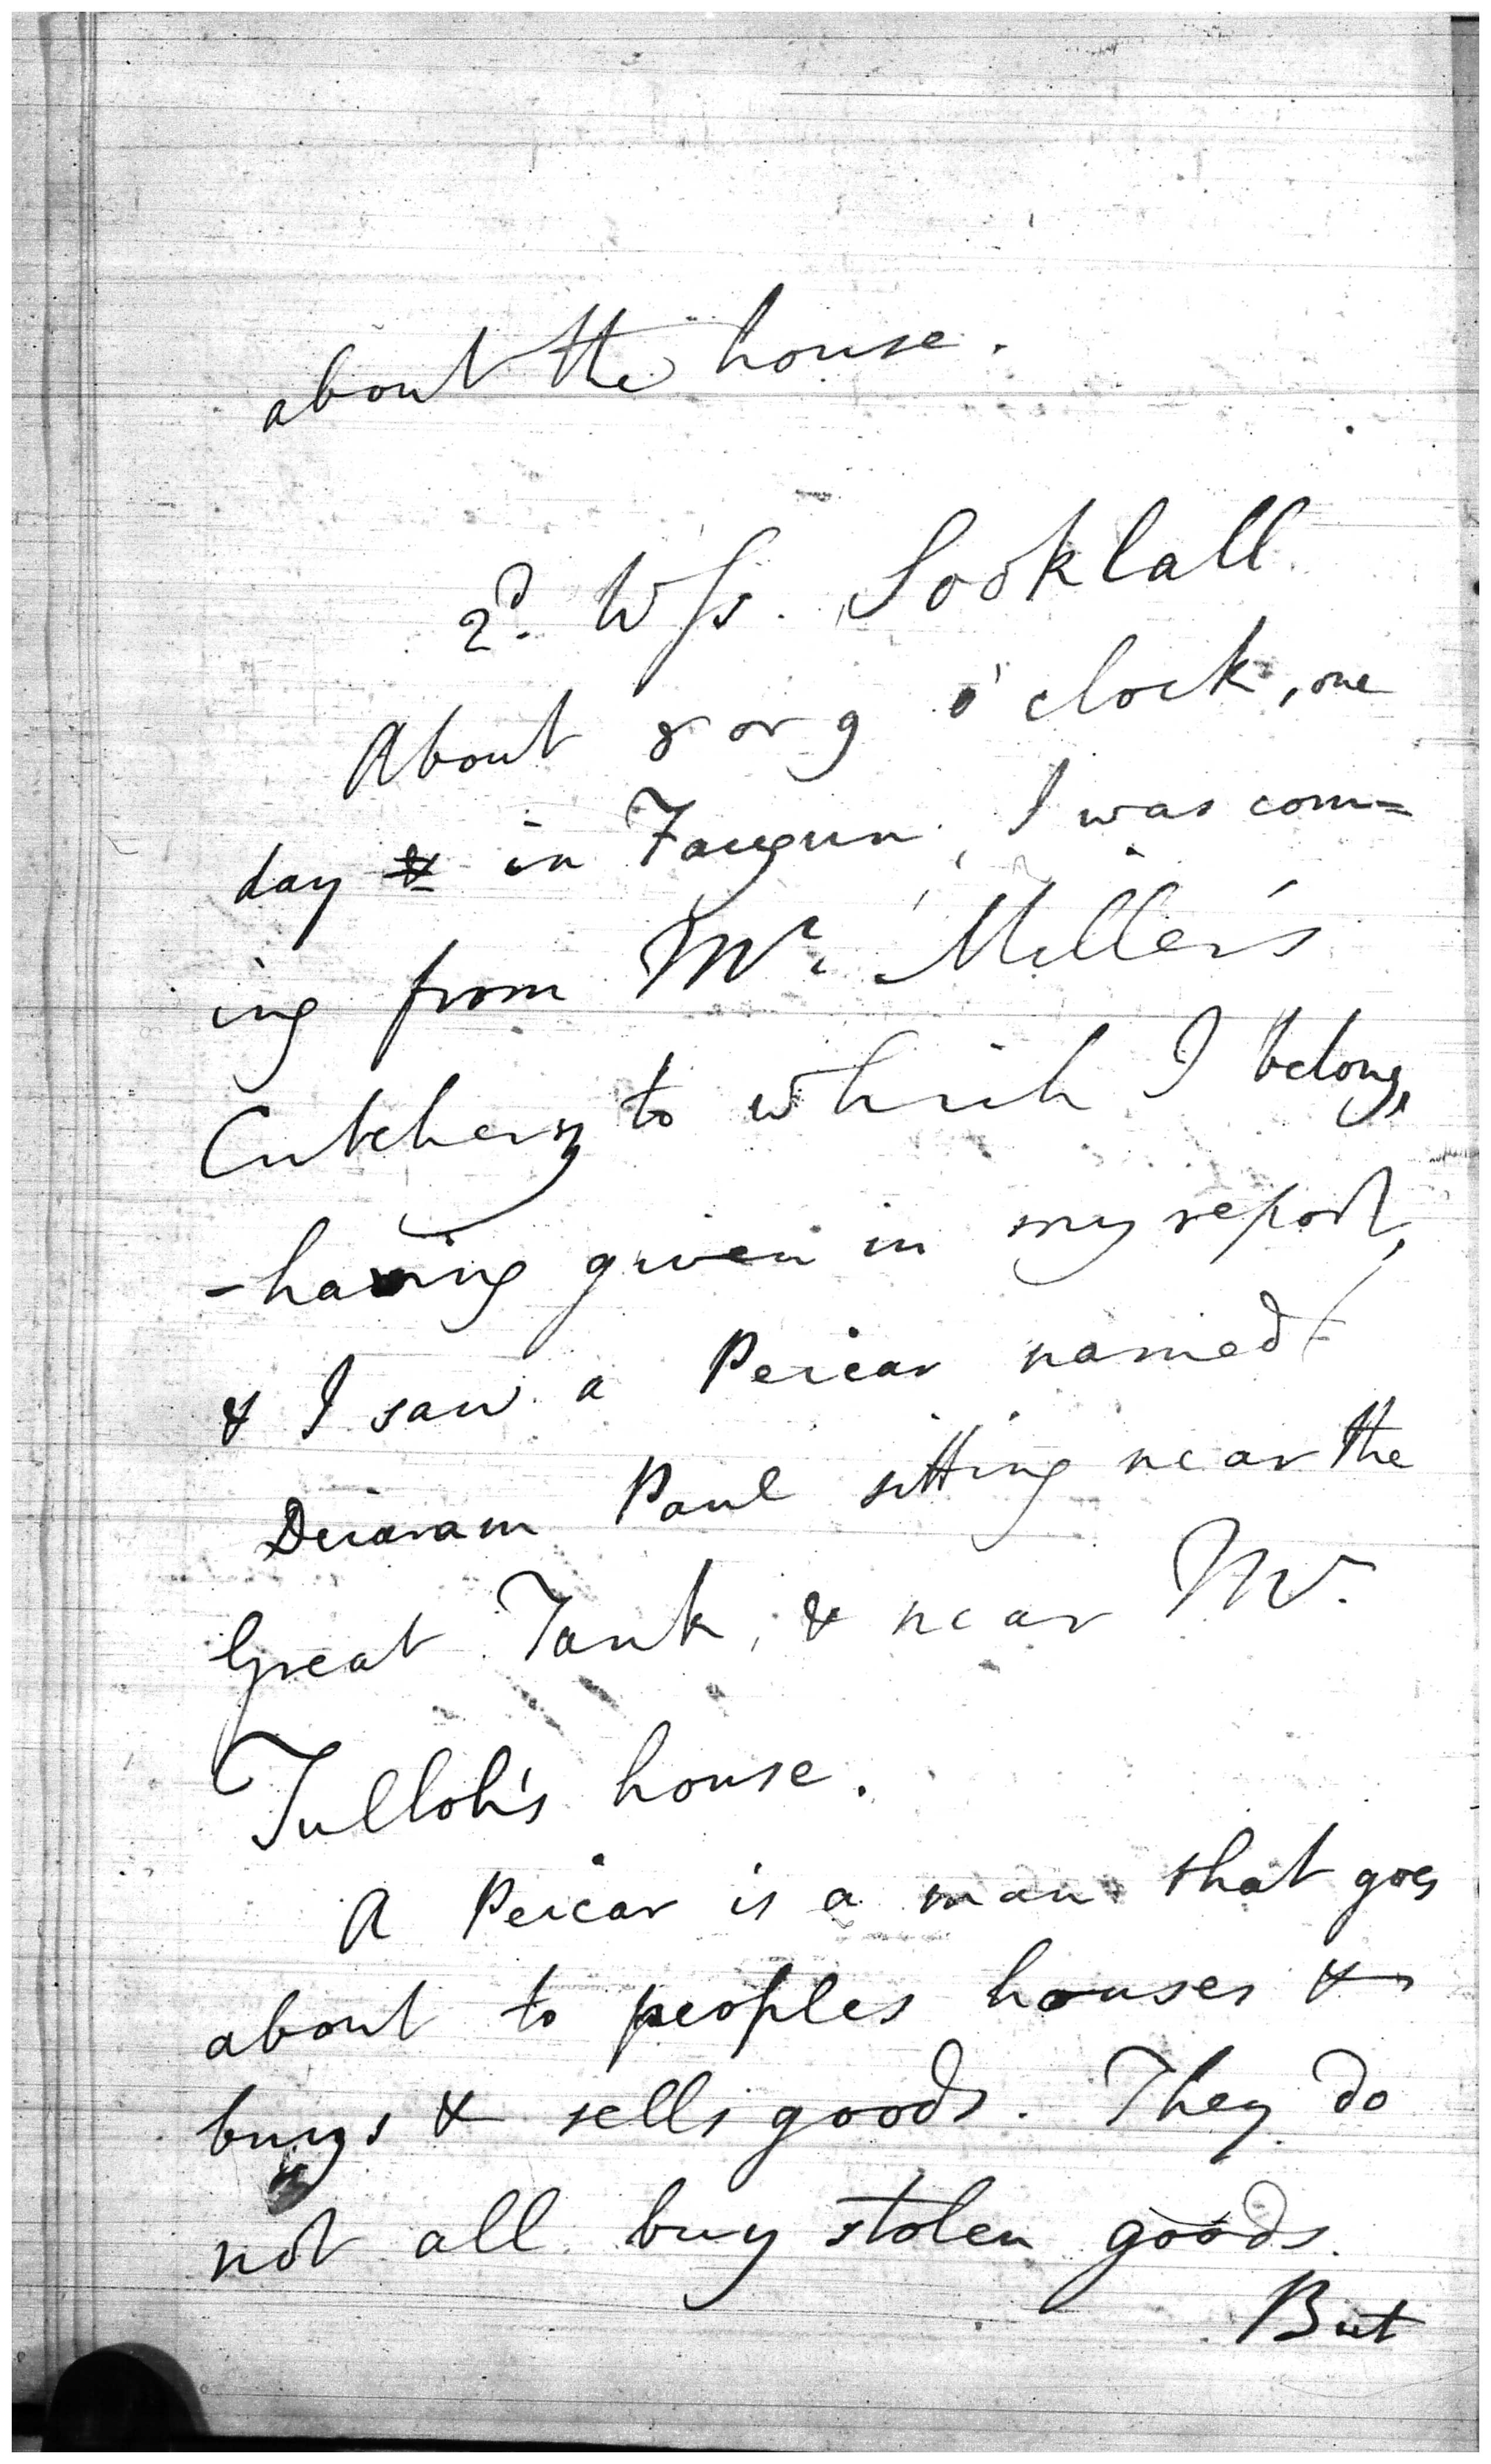 about the house.
2d. Wss. Sooklall
About 8 or 9 o'clock, one
day & in Faugun, I was com=
ing from Mr. Miller's
Cutchery to which I belong,
-having given in my report,
& I saw a Peicar named
Deiaram Paul sitting near the
Great Tank, & near Mr.
Tulloh's house.
A Peicar is a man that goes
about to peoples houses &
buys & sells goods. They do
not all buy stolen goods.
But